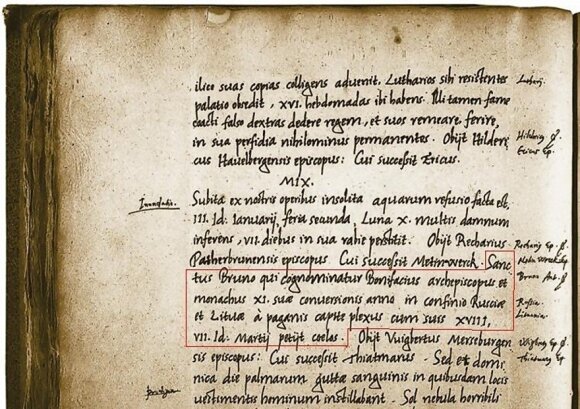 ilico suas copias colligens advenit. Lutharios sibi resistentes
palatio obsedit, XVI. hebdomadas ibi habens. Illi tamen fame
coacti falso dextras dedere regem, et suos remeare ferire,
in sua perfidia nihilominus permanentes. Obijt Hilderi
cus Havelbergensis episcopus: Cui successit Ericus.
Ericus Ep.
MIX.
Subita ex nostris operibus insolita aquarum refusio facta est,
Inundatio.
III. Id: Ianuarij, feria secunda, Luna X. multis damnum
inferens, VII. diebus in sua rabie perstitit. Obijt Recharius
Patherbrunensis episcopus: Cui successit Metinwerck. Sanc
tus Bruno qui cognominatur Bonifacius archiepiscopus et
monachus XI. suae conversionis anno in confinio Rusciae
Russia.
et Lituae à paganis capite plexus cum suis XVIII,
Lituania.
VII. Id: Martij petijt coelos. Obijt Vuigbertus Merseburgen
sis episcopus: Cui successit Thiatmarus. Sed et domi
nica die palmarum guttae sanguinis in quibusdam locis
vestimentis hominum instillabant. Sol nebula horribili